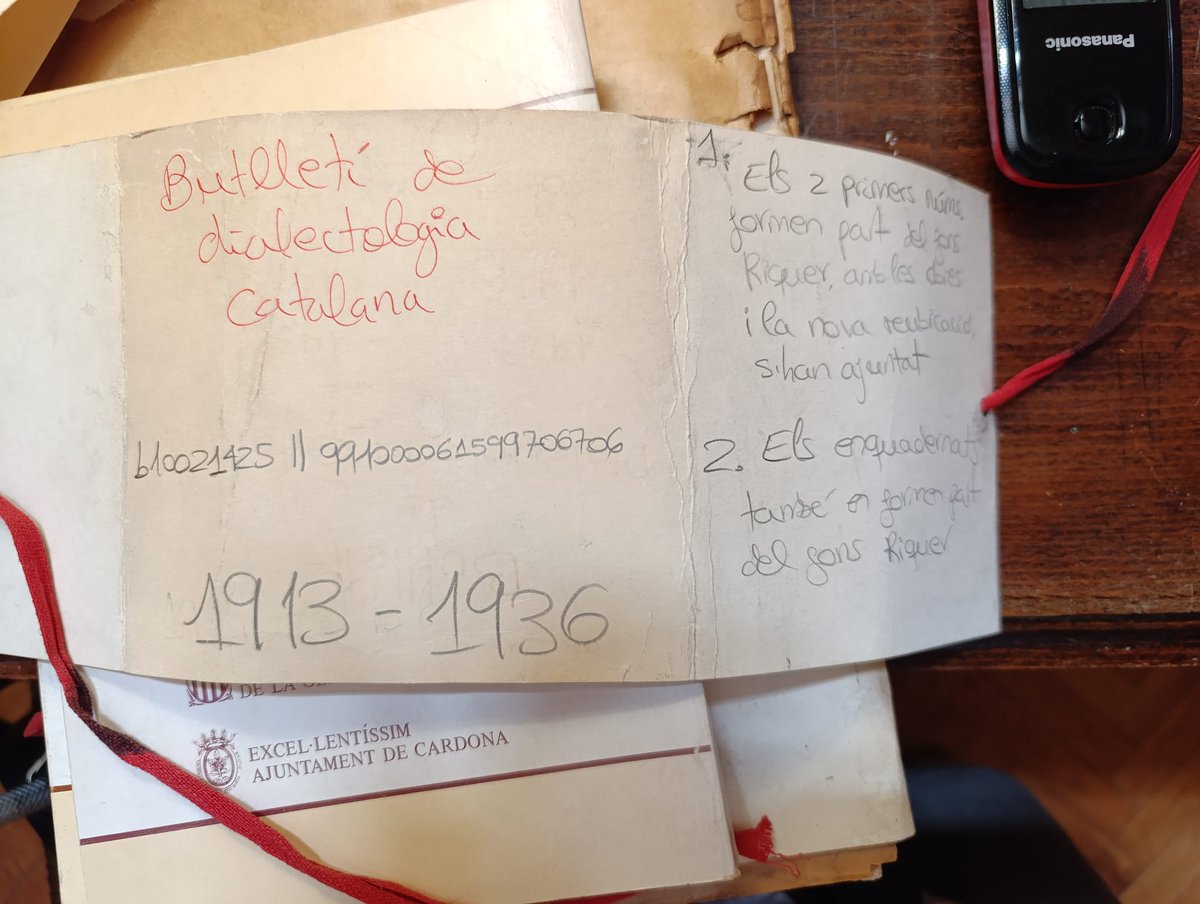 Butlletí de
dialectologia
Catalana
b10021425 || 991000061599706706
1913 - 1936
1. Els 2 primers núms.
formen part del fons
Riquer, amb les obres
i la nova reubicació,
s'han ajuntat
2. Els enquadernats
també en formen part
del fons Riquer
Panasonic
DE LA
EXCEL·LENTÍSSIM
AJUNTAMENT DE CARDONA